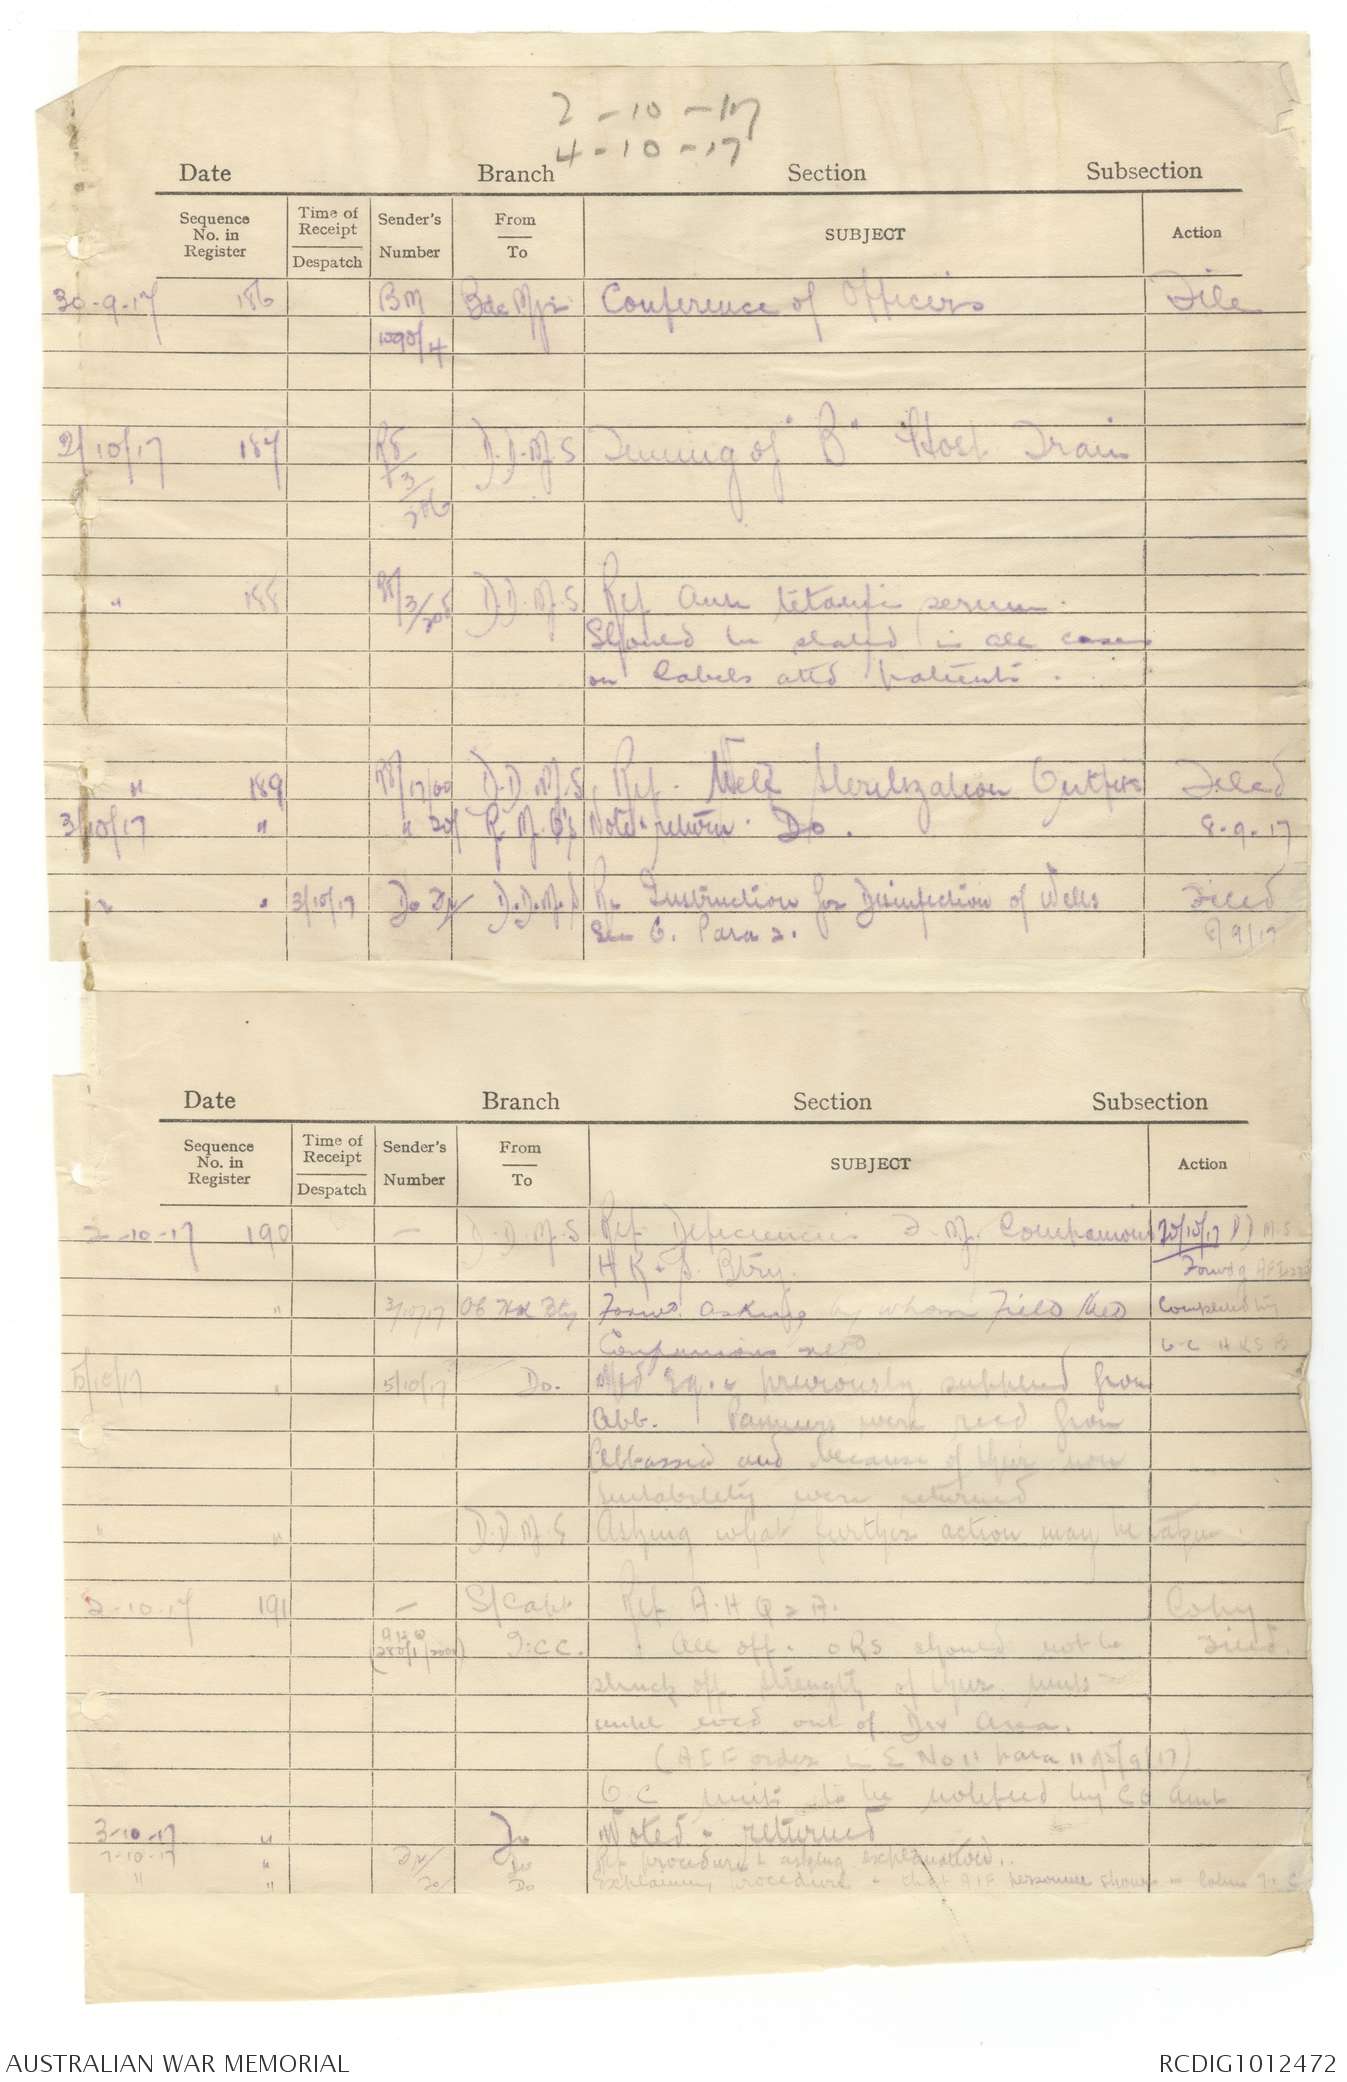 2-10-17
4-10-17
Date Branch Section Subsection
Sequence No. in Register Time of Receipt Despatch Sender's Number From To SUBJECT Action
30-9-17 186 BM Bde Mjr Conference of Officers File
1090/4
2/10/17 187 D.D.M.S Timing of "B" Hosp Train
3/
" 188 D.D.M.S Ref Anti tetanfi serum.
Should be stated in all cases
on labels attd patients.
" 189 17/60 D.D.M.S. Ref. Well Sterilization Outfits Filed
3/10/17 " " R.M.O's Noted & return. Do. 8-9-17
" " 3/10/17 Do D.D.M.S Re Instruction for Disinfection of Wells Filed
See 6. Para 2. 8/9/17
Date Branch Section Subsection
Sequence No. in Register Time of Receipt Despatch Sender's Number From To SUBJECT Action
2-10-17 190 — D.D.M.S Ref Deficiencies F. M. Companions 20/10/17 D.D.M.S
H K & S. Btry. Forwdg
" 3/10/17 Forwd. asking by whom Field Med Completed by
Companions recd O.C H K S B
5/10/17 " 5/10/17 Do. Med Eq. & previously supplied from
Abb. Panniers were recd from
Abbassia and because of their non
suitability were returned
" " D.D.M.S Asking what further action may be taken.
2-10-17 191 — S/Capt Ref A.H.Q 2 A. Copy
I.C.C. All off. ORS should not be Filed.
struck off strength of their units
until evcd out of Dex Area.
(A I F order No 11 para 11 9/17)
O.C units to be notified by
3-10-17 " Do Noted & returned
7-10-17 " Do Ref procedure & asking explanation.
" " Do Explaining procedure & that AIF personnel
AUSTRALIAN WAR MEMORIAL RCDIG1012472